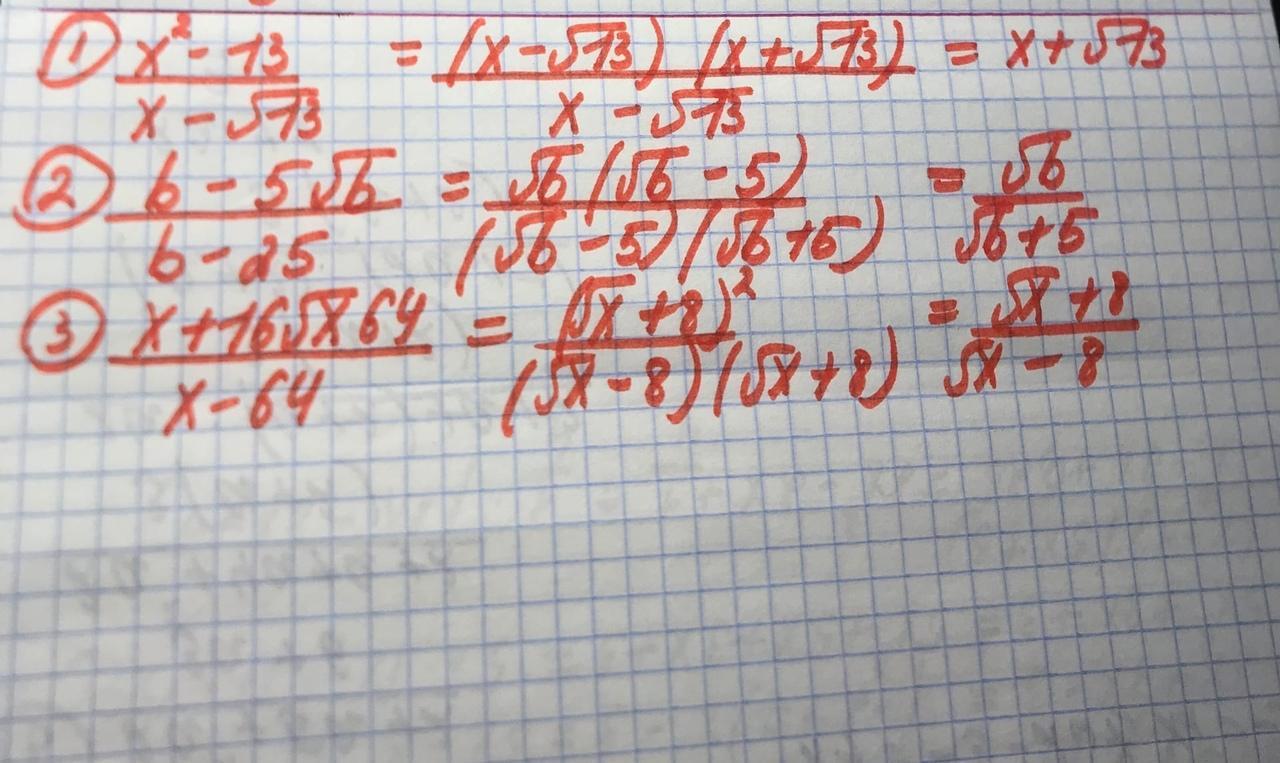 ① x² - 13 / x - √13 = (x - √13) (x + √13) / x - √13 = x + √13
② b - 5√b / b - 25 = √b (√b - 5) / (√b - 5) (√b + 5) = √b / √b + 5
③ x + 16√x 64 / x - 64 = (√x + 8)² / (√x - 8) (√x + 8) = √x + 8 / √x - 8